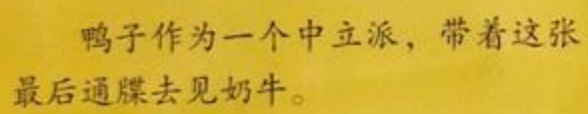 鸭子作为一个中立派，带着这张
最后通牒去见奶牛。